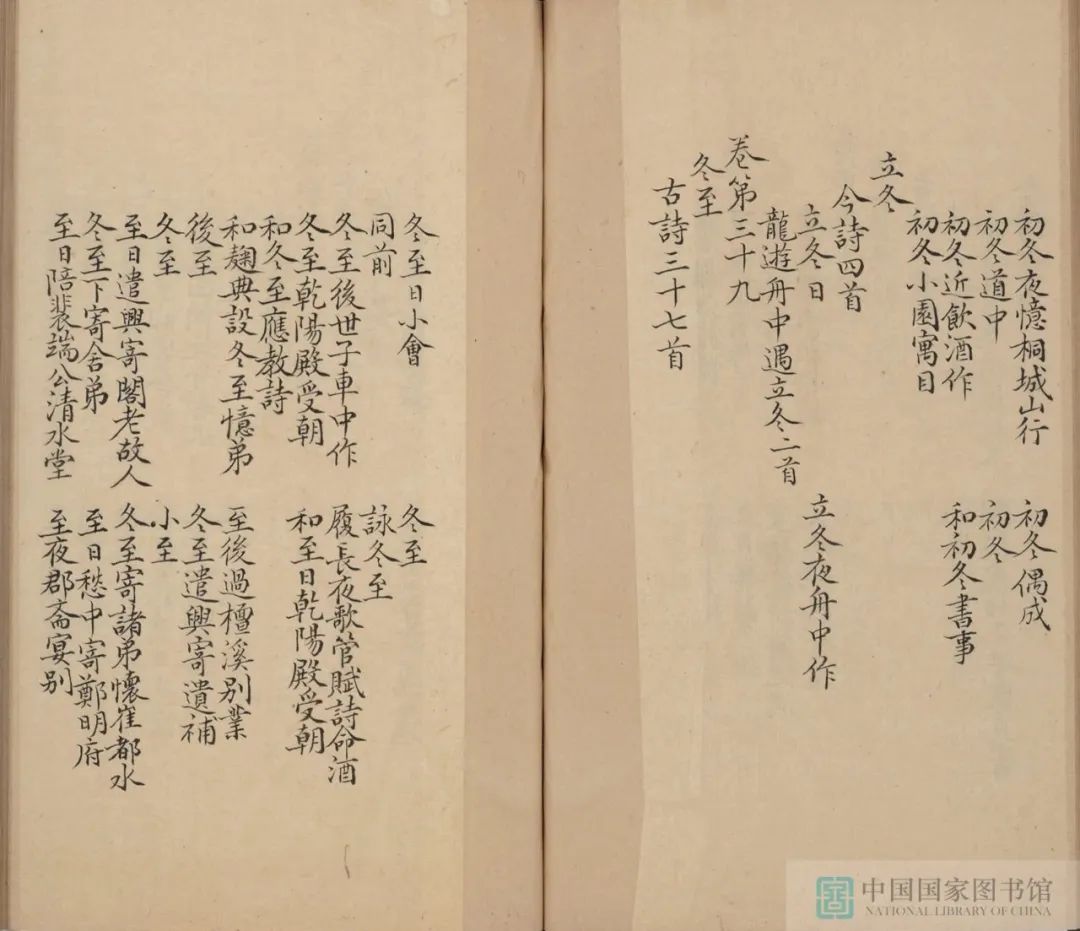 初冬夜憶桐城山行　初冬偶成
初冬道中　初冬
初冬近飲酒作　和初冬書事
初冬小園寓目
立冬
今詩四首
立冬日　立冬夜舟中作
龍遊舟中遇立冬二首
卷第三十九
冬至
古詩三十七首
冬至日小會　冬至
同前　詠冬至
冬至後世子車中作　履長夜歌管賦詩命酒
冬至乾陽殿受朝　和至日乾陽殿受朝
和冬至應教詩
和麹典設冬至憶弟　至後過檀溪別業
後至　冬至遣興寄遺補
冬至　小至
至日遣興寄閣老故人　冬至寄諸弟懷崔都水
冬至下寄舍弟　至日愁中寄鄭明府
至日陪裴端公清水堂　至夜郡斋宴別
中国国家图书馆
NATIONAL LIBRARY OF CHINA